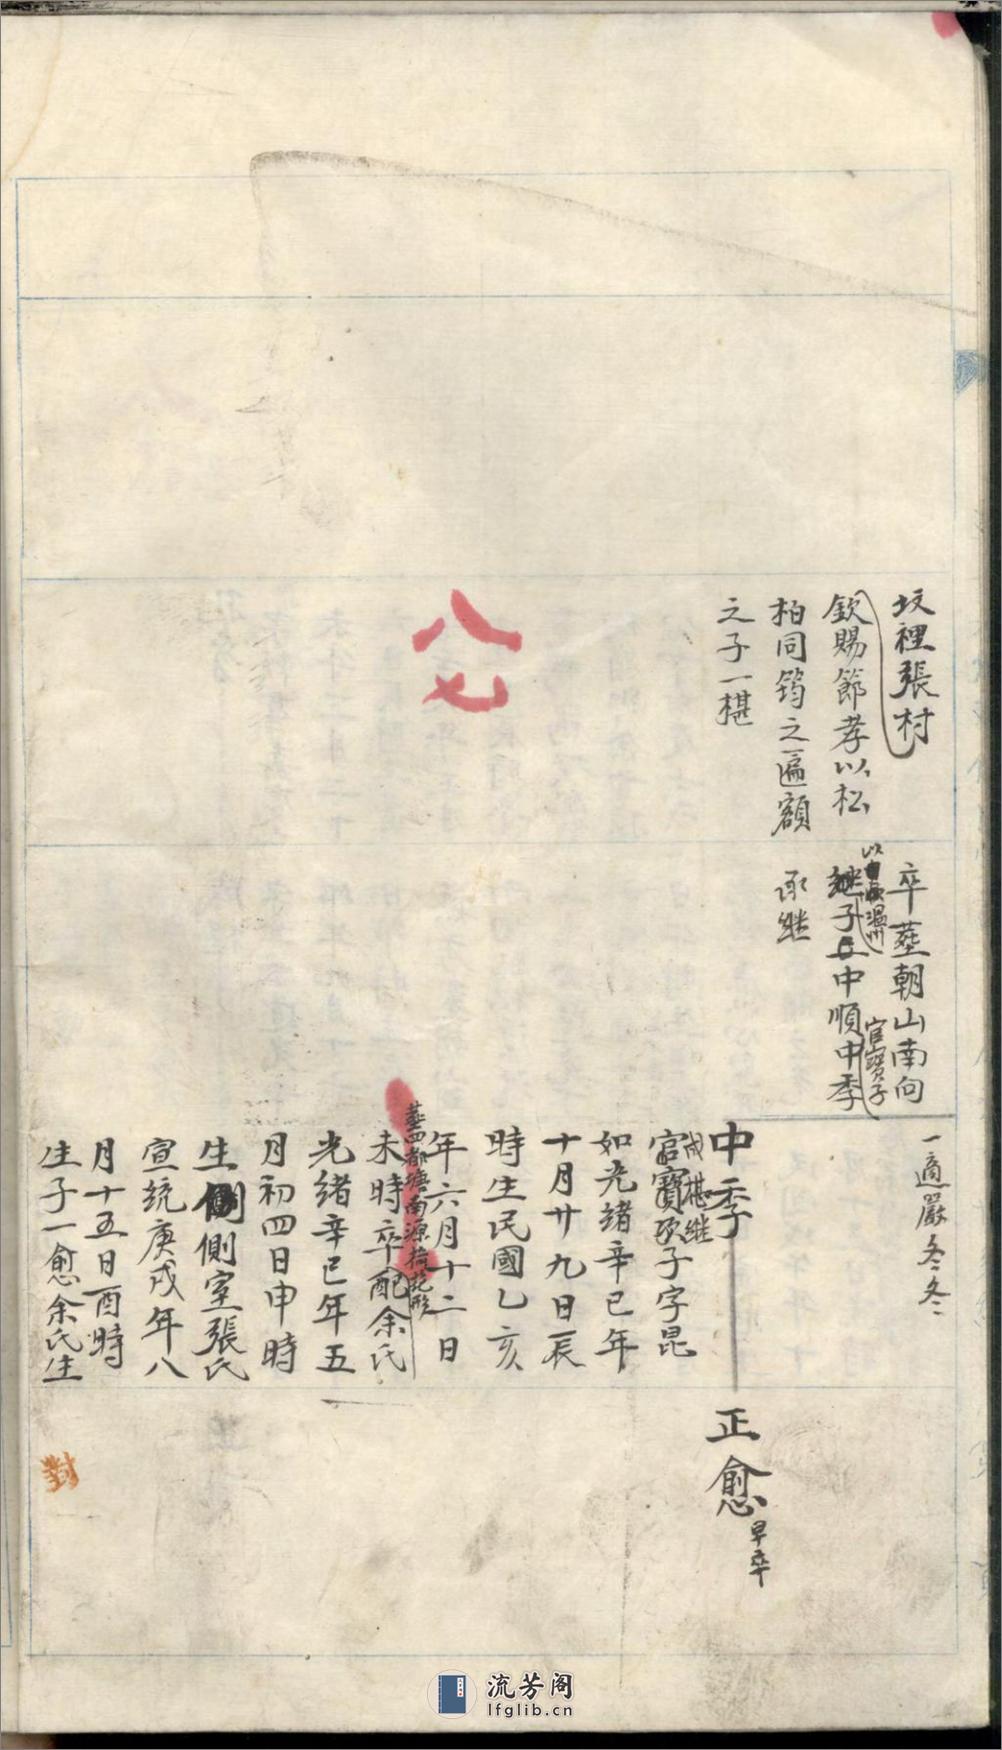 坟裡張村
欽賜節孝以松
柏同筠之匾額
之子一椹
八七
卒塟朝山南向
以 溫州
继子 中順中季
官寶子
承继
一適嚴冬冬
中季
成椹继
官寶 子字昆
如光緒辛巳年
十月廿九日辰
時生民國乙亥
年六月十二日
塟四都塘南源 形
未時卒配余氏
光緒辛巳年五
月初四日申時
生側側室張氏
宣統庚戌年八
月十五日酉時
生子一愈余氏生
正愈
早卒
對
流芳阁
lfglib.cn